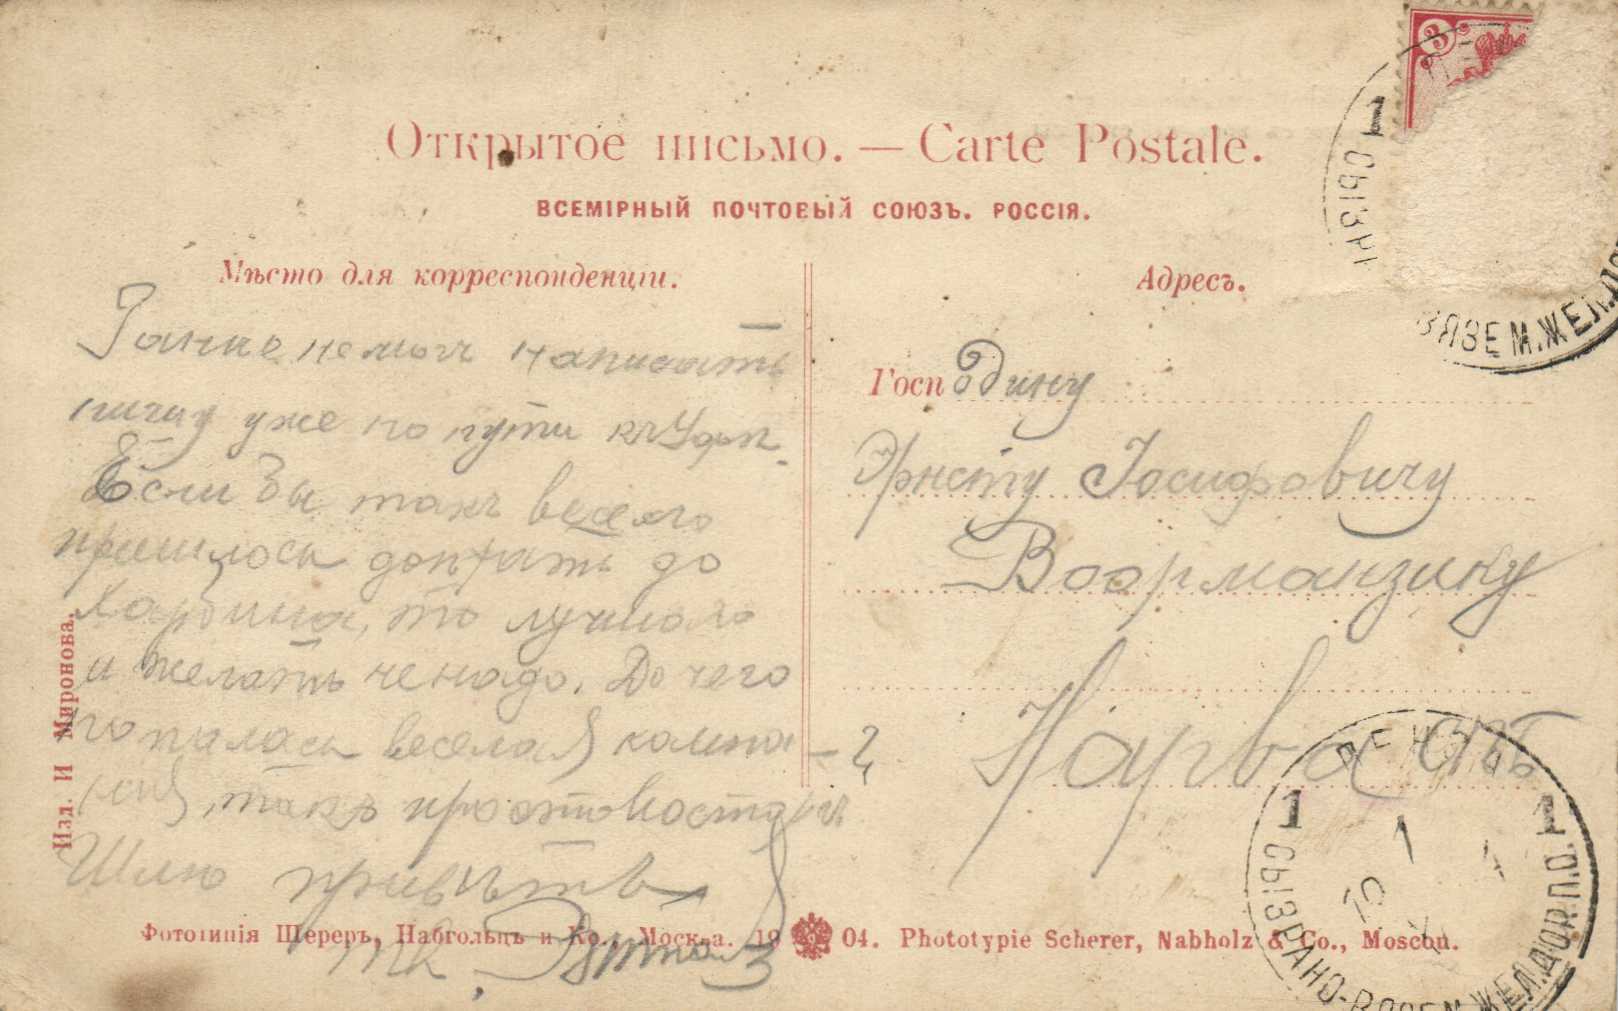 Открытое письмо. — Carte Postale.
ВСЕМІРНЫЙ ПОЧТОВЫЙ СОЮЗЪ. РОССІЯ.
Мѣсто для корреспонденціи.
Ранше немогъ написать
пишу уже по пути къ Уфѣ.
Если Вы такъ весело
пришлось доѣхать до
Харбина, то лучшаго
и желать ненадо. До чего
попалась веселая компа-
нія, такъ просто восторгъ
Шлю привѣтъ
Адресъ.
Господину
Эрнсту Іосифовичу
Ваарманзину
Нарва
3
1
СЫЗРАНО
ВЯЗЕМ. ЖЕЛ.
ПЕНЗА
1
1
СЫЗРАНО-ВЯЗЕМ. ЖЕЛ. ДОР. П.О.
Изд. И Миронова.
Фототипія Шереръ, Набгольцъ и Ко., Москва. 19 04. Phototypie Scherer, Nabholz & Co., Moscou.